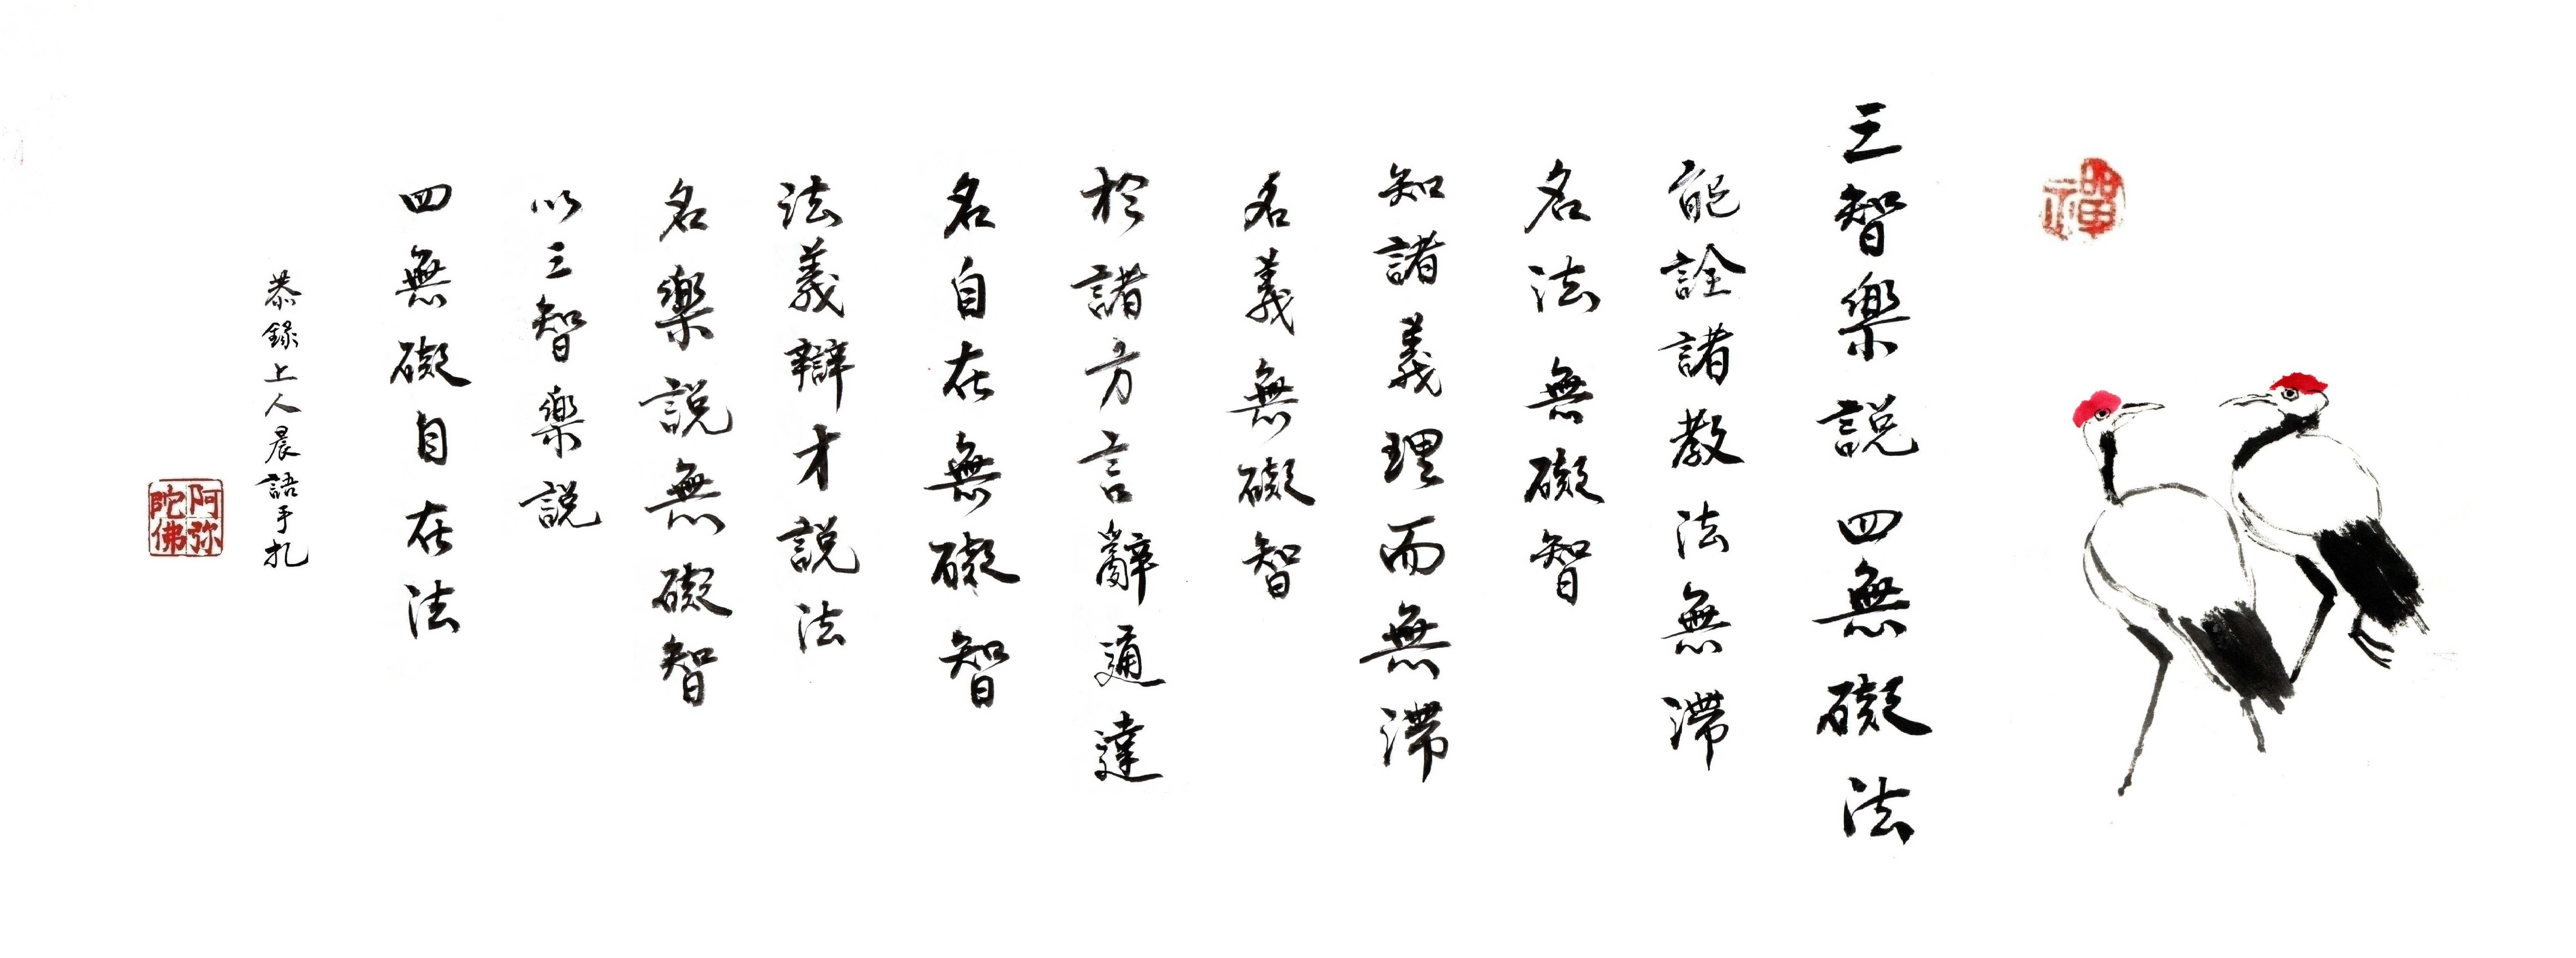 禪
三智樂説四無礙法
能詮諸教法無滯
名法無礙智
知諸義理而無滯
名義無礙智
於諸方言辭通達
名自在無礙智
法義辯才説法
名樂説無礙智
以三智樂説
四無礙自在法
恭錄上人晨語手札
阿弥陀佛